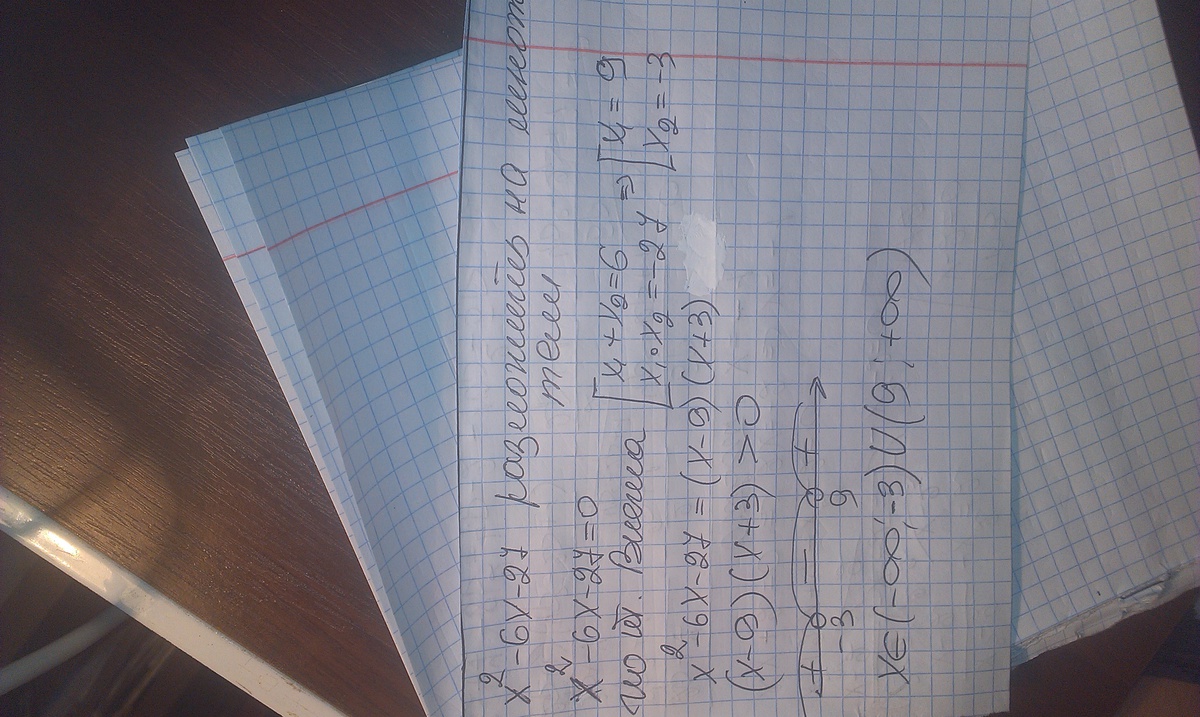 x² - 6x - 27 разложить на множи
тели
x² - 6x - 27 = 0
по т. Виета [x₁ + x₂ = 6 ⇒ [x₁ = 9
[x₁ • x₂ = -27 [x₂ = -3
x² - 6x - 27 = (x - 9)(x + 3)
(x - 9)(x + 3) > 0
+ - +
-3 9
x ∈ (-∞; -3) ∪ (9; +∞)